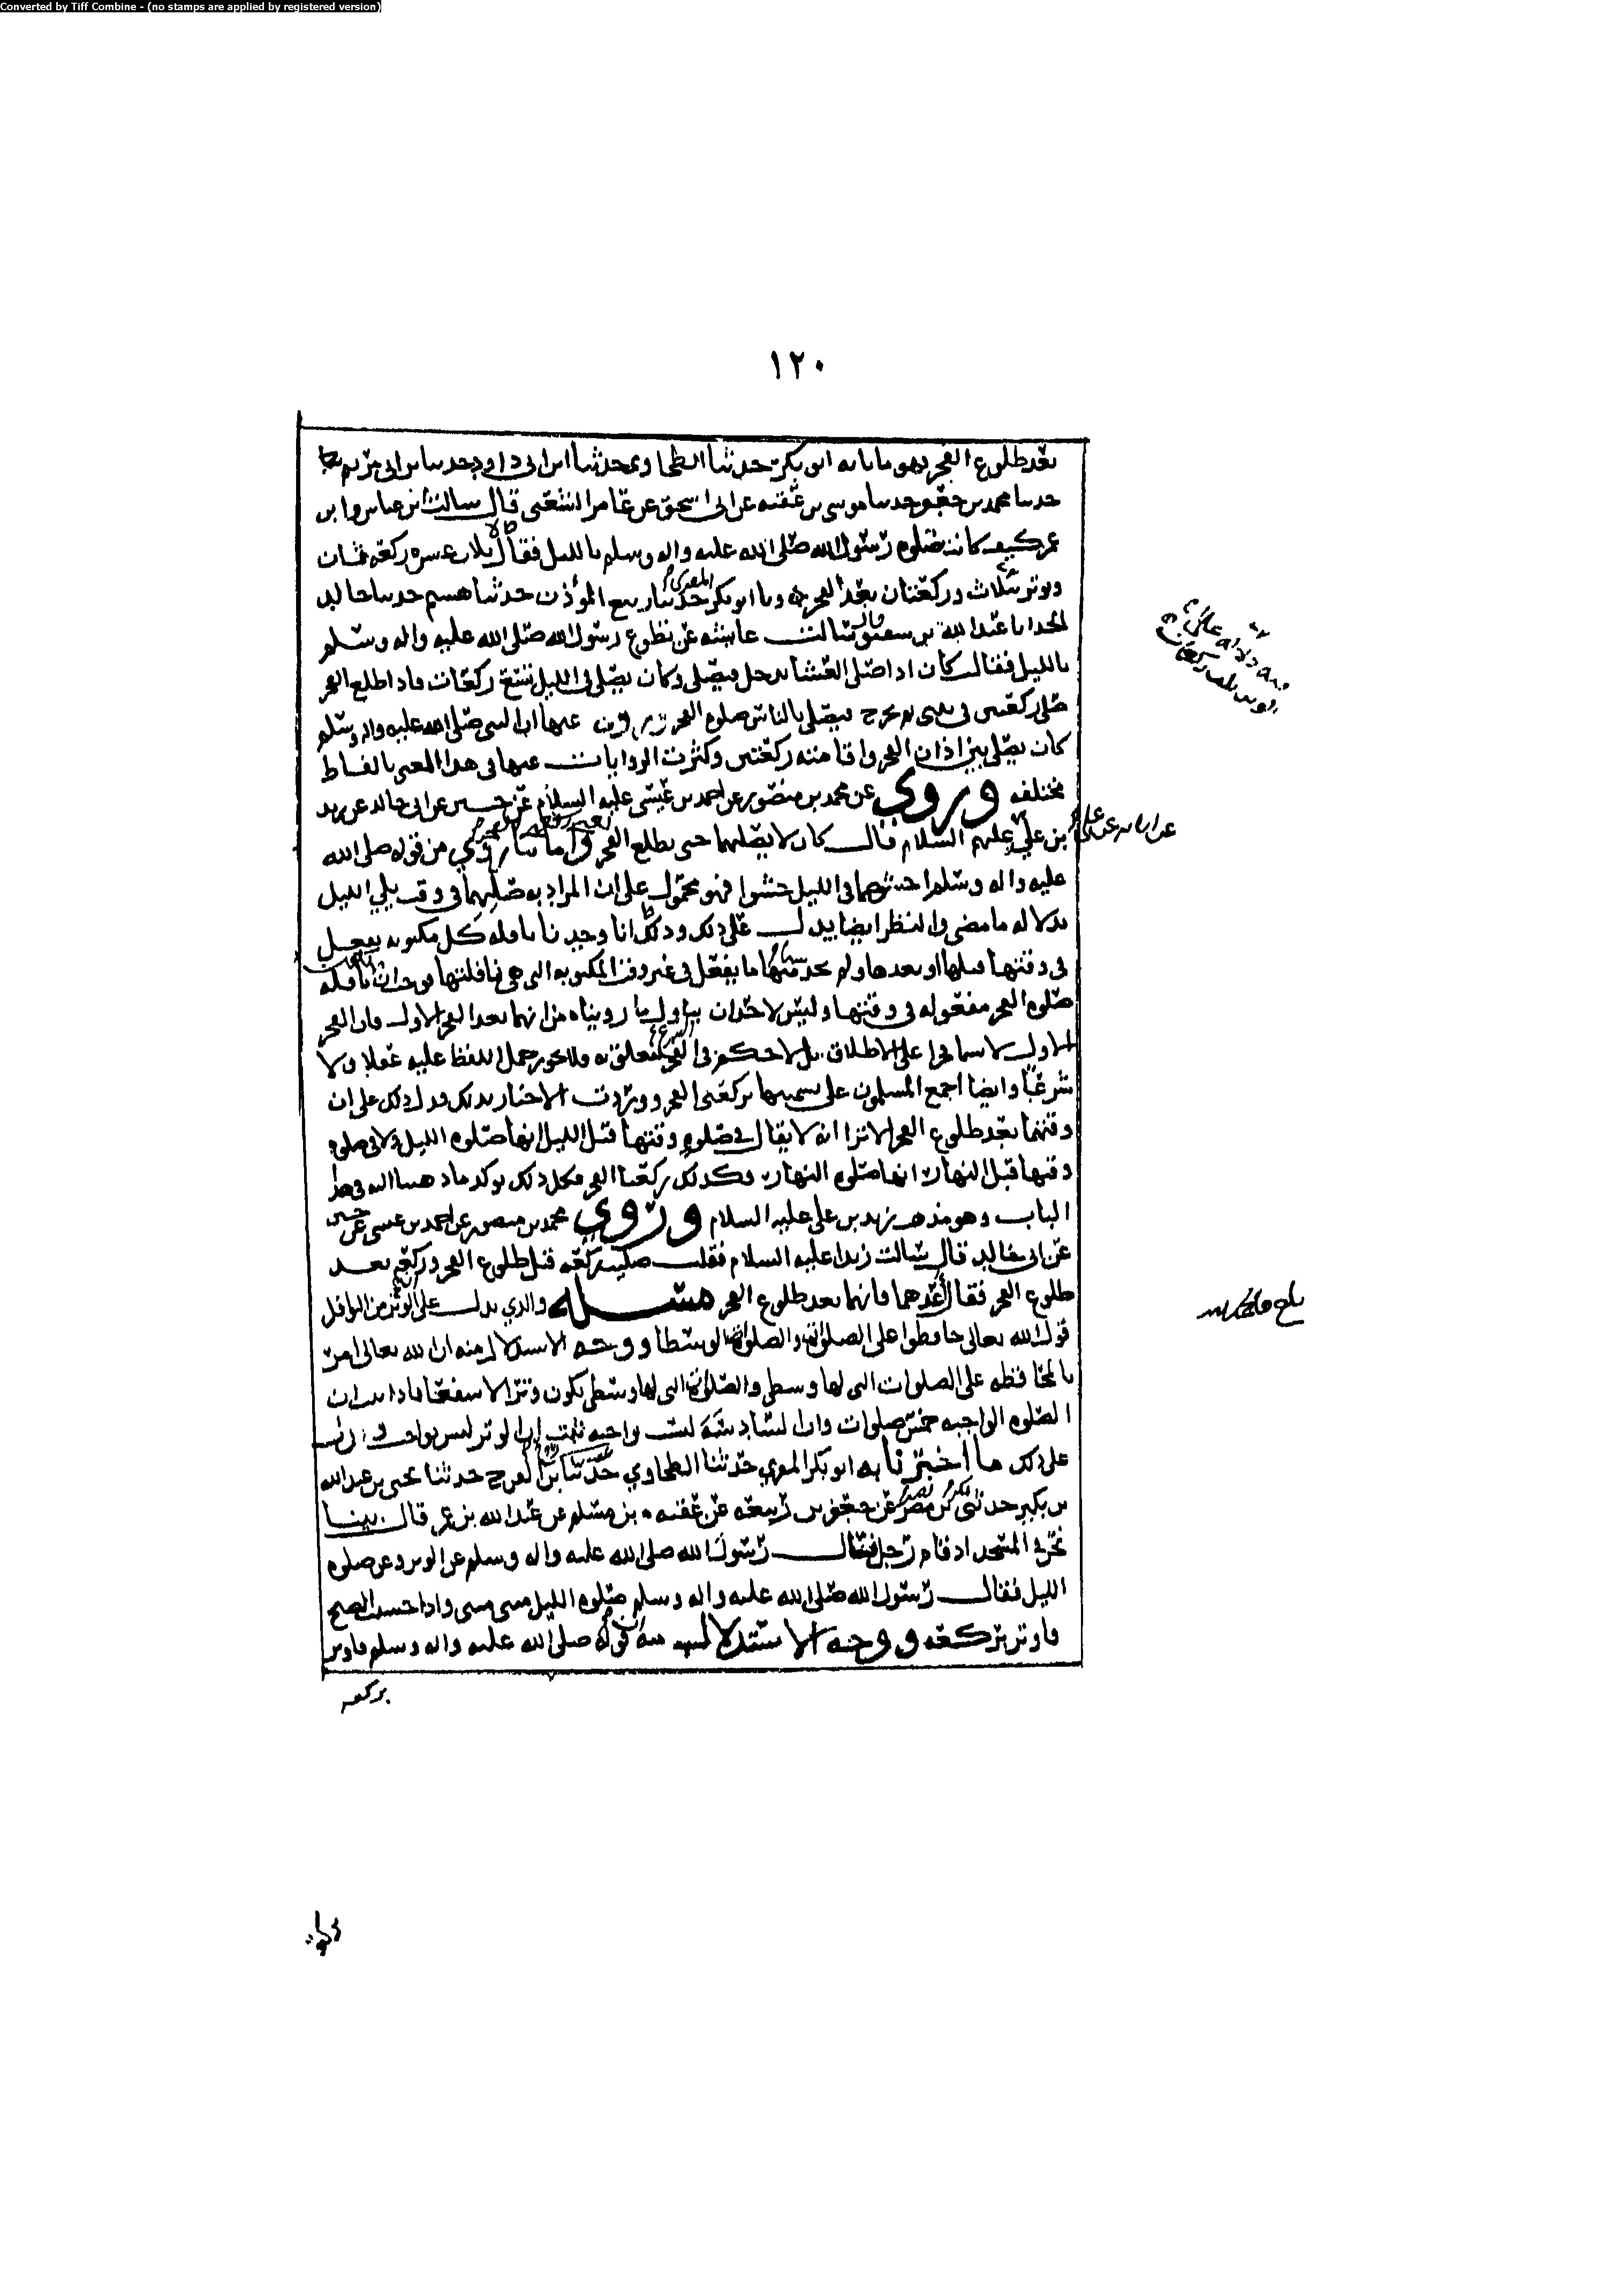 Converted by Tiff Combine - (no stamps are applied by registered version)
١٢٠
بعد طلوع الفجر فهو ما نا به ابو بكر حدثنا الطحاوي حدثنا ابن ابي داود حدثنا ابن ابي مريم
حدثنا محمد بن جعفر حدثنا موسى بن عقبه عن ابي اسحق عن عامر الشعبي قال سالت ابن عباس وابن
عمر كيف كانت صلوه رسول الله صلى الله عليه واله وسلم بالليل فقالا ثلاث عشره ركعه ثمان
ويوتر بثلاث وركعتان بعد الفجر ونا ابو بكر المقري حدثنا ربيع المؤذن حدثنا هشيم حدثنا خالد
الحذا نا عبد الله بن شقيق قال سالت عايشه عن تطوع رسول الله صلى الله عليه واله وسلم
بالليل فقالت كان اذا صلى العشا يدخل فيصلي وكان يصلي في الليل تسع ركعات فاذا طلع الفجر
صلى ركعتين في بيتي ثم يخرج فيصلي بالناس صلوه الفجر عنها ان النبي صلى الله عليه واله وسلم
كان يصلي بين اذان الفجر واقامته ركعتين وكثرت الروايات عنها في هذا المعنى بالفاظ
مختلفه وروي عن محمد بن منصور عن احمد بن عيسى عليه السلام عن حسين عن ابي خالد عن زيد
بن علي عليهم السلام قال كان لا يصليهما حتى يطلع الفجر واما ما روي من قوله صلى الله
عليه واله وسلم احشوهما في الليل حشوا فهو محمول على ان المراد به صليهما في وقت يلي الليل
بدلاله ما مضى والنظر ايضا يدل على ذلك وذلك انا وجدنا نافله كل مكتوبه يفعل
في وقتها قبلها او بعدها ولم نجد منها ما يفعل في غير وقت المكتوبه التي هي نافلتها فوجب ان نافله
صلوه الفجر مفعوله في وقتها وليس لاحد ان يتاول ما رويناه من انهما بعد الفجر الاول فان الفجر
الاول لا يسما فجرا على الاطلاق بل لا حكم في الشرع يتعلق به فلا يجوز حمل اللفظ عليه عقلا ولا
شرعا وايضا اجمع المسلمون على تسميتهما بركعتي الفجر ووردت الاخبار بذلك فدل ذلك على ان
وقتهما بعد طلوع الفجر الا ترا انه لا يقال في صلوه وقتها قبل الليل انها صلوه الليل ولا في صلوه
وقتها قبل النهار انها صلوه النهار وكذلك ركعتا الفجر فكل ذلك يوكد ما ذهبنا اليه في هذا
الباب وهو مذهب زيد بن علي عليه السلام وروى محمد بن منصور عن احمد بن عيسى عن حسين
عن ابي خالد قال سالت زيدا عليه السلام فقلت صليت ركعه قبل طلوع الفجر وركعه بعد
طلوع الفجر فقال اعدهما فانهما بعد طلوع الفجر مسئله والذي يدل على ان الوتر من النوافل
قول الله تعالى حافظوا على الصلوات والصلوه الوسطا ووجه الاستدلال منه ان الله تعالى امر
بالمحافظه على الصلوات التي لها وسطى والصلوات التي لها وسطى يكون وترا لا شفعا فاذا ثبت ان
الصلوه الواجبه خمس صلوات وان السادسه ليست واجبه ثبت ان الوتر ليس بواجب
على ذلك ما اخبرنا به ابو بكر المقري حدثنا الطحاوي حدثنا ابن الفرج حدثنا يحيى بن عبد الله
بن بكير حدثني بكر بن مضر عن جعفر بن ربيعه عن عقبه بن مسلم عن عبد الله بن عمر قال بينا
نحن في المسجد اذ قام رجل فسال رسول الله صلى الله عليه واله وسلم عن الوتر وعن صلوه
الليل فقال رسول الله صلى الله عليه واله وسلم صلوه الليل مثنى مثنى واذا خشيت الصبح
فاوتر بركعه ووجه الاستدلال منه قوله صلى الله عليه واله وسلم فاوتر
بركعه